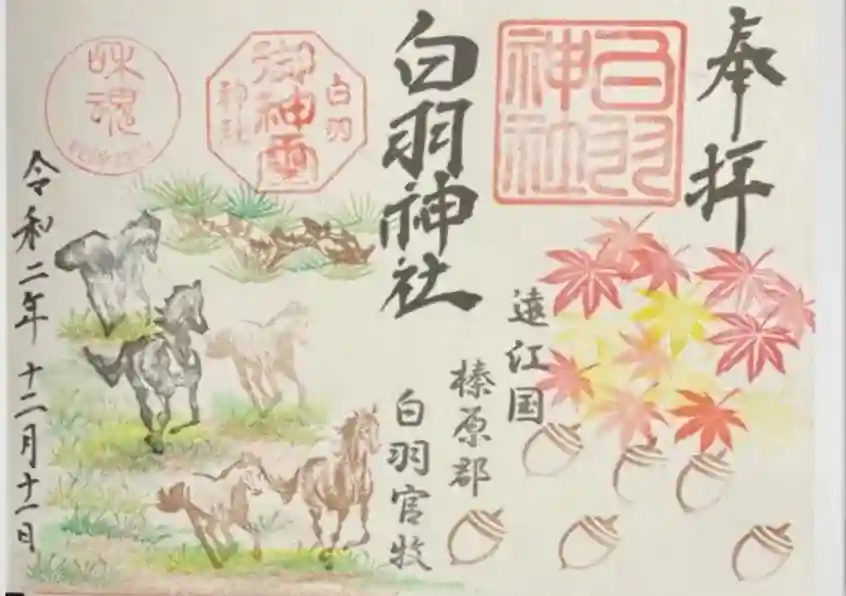 奉拝
白羽神社
遠江国
白羽神社
榛原郡
白羽官牧
白羽
御神霊
神社
味魂
令和二年 十二月十二日